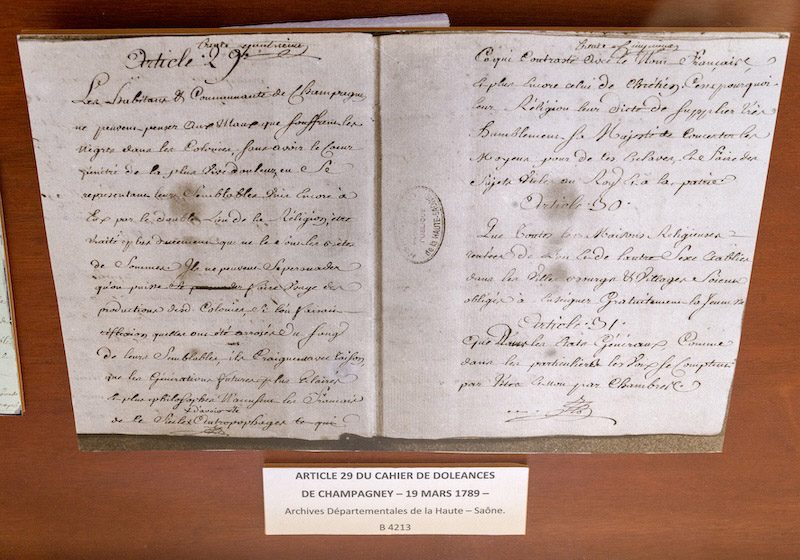 trente quatrieme
Article 29.
Les habitans & Communauté de Champagney
ne peuvent penser aux Maux que souffrent les
Nègres dans les Colonies, sans avoir le Coeur
pénétré de la plus vive douleur, en se
representant leurs Semblables, unis encore à
Eux par le double Lien de la Religion, être
traités plus durement que ne le sont les bêtes
de Somme. Ils ne peuvent se persuader
qu'on puisse faire usage des
productions desd. Colonies, si l'on faisait
réflexion quelles ont été arrosées du Sang
de leurs Semblables, ils Craignent avec raison
que les Générations futures plus Eclairées
& plus philosophes n'accusent les Français
d'avoir été
de ce Siecle Antropophages ce qui
trente cinquieme
Ce qui Contraste avec le Nom Français
& plus encore celui de Chrétien. C'est pourquoi
leur Religion leur dicte de supplier très
humblement Sa Majesté de Concerter les
Moyens pour de ces Esclaves, En faire des
Sujets Utiles au Roy & à la patrie
Article 30.
Que toutes les Maisons Religieuses
rentées de l'un & de l'autre Sexe établies
dans les Villes, bourgs & Villages Soient
obligés à Enseigner Gratuitement la Jeunesse
Article 31.
Que Dans les Etats Généraux Comme
dans les particuliers les Voix se Comptent
par tête & non par Chambres
BIBLIOTHEQUE
de la HAUTE-SAÔNE
ARTICLE 29 DU CAHIER DE DOLEANCES
DE CHAMPAGNEY – 19 MARS 1789 –
Archives Départementales de la Haute – Saône.
B 4213